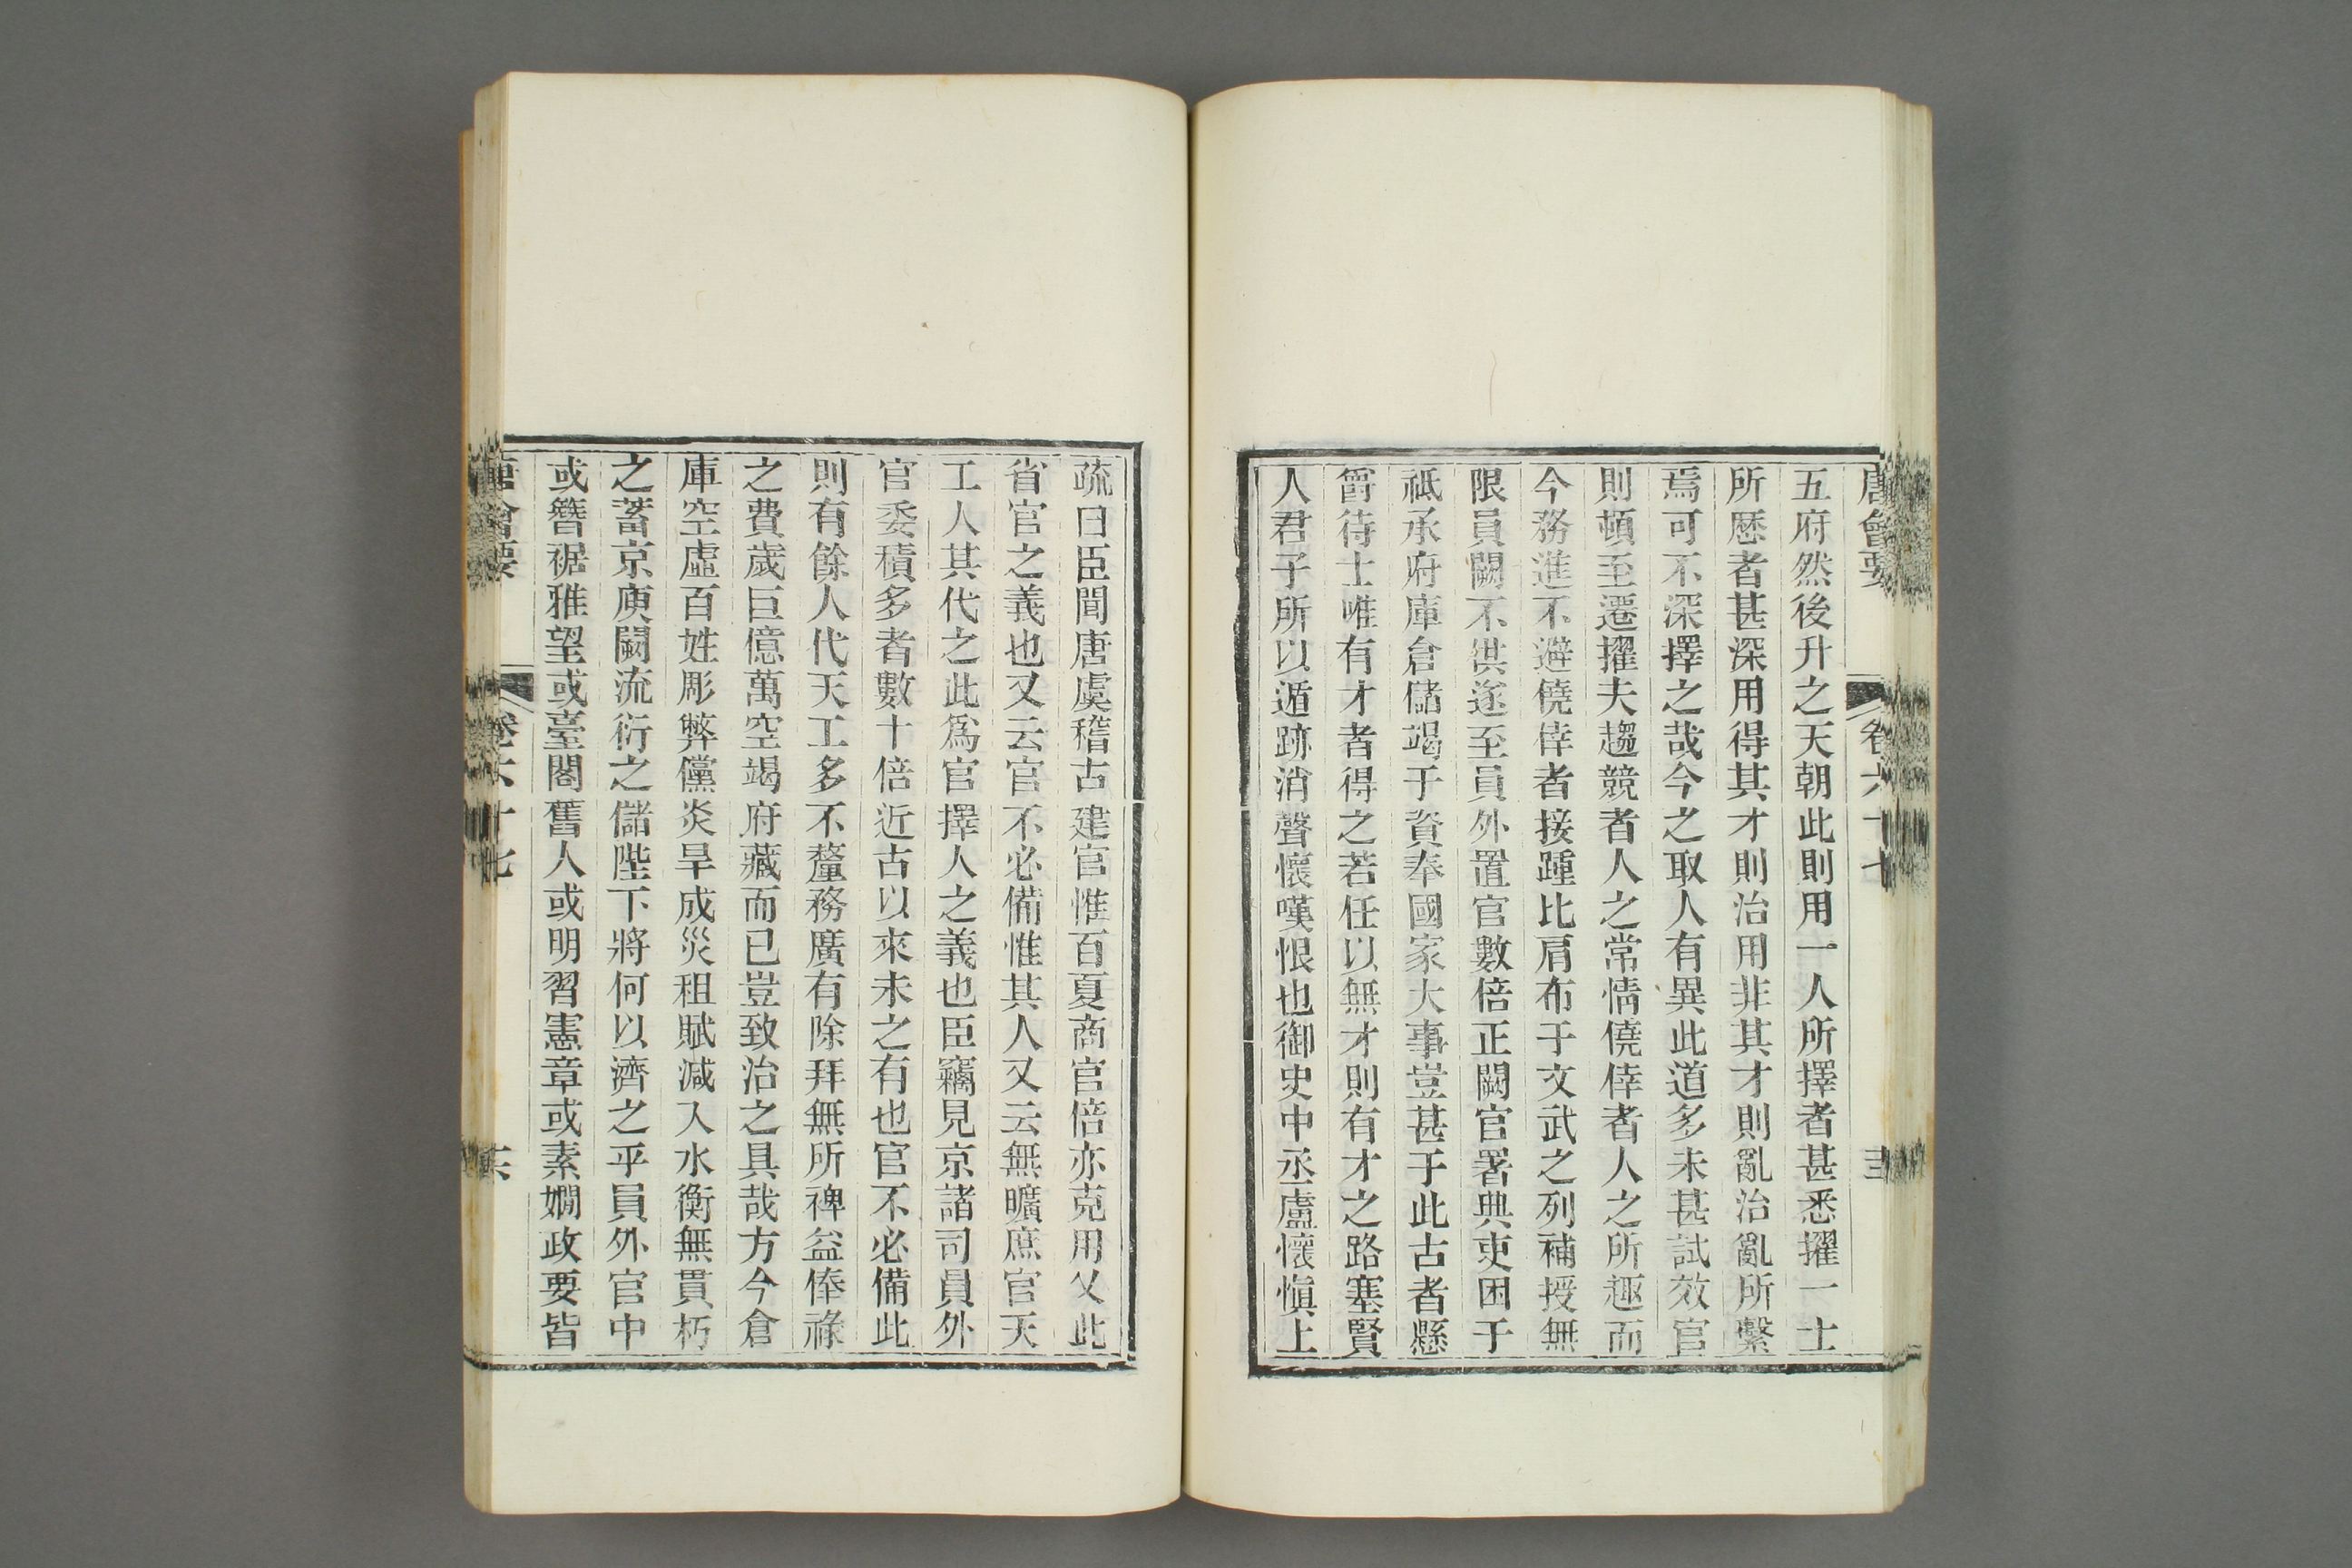 唐會要 卷六十七
五府然後升之天朝此則用一人所擇者甚悉擢一士
所歷者甚深用得其才則治用非其才則亂治亂所繫
焉可不深擇之哉今之取人有異此道多未甚試效官
則頓至遷擢夫趨競者人之常情僥倖者人之所趣而
今務進不避僥倖者接踵比肩布于文武之列補授無
限員闕不供遂至員外置官數倍正闕官署典吏困于
祗承府庫倉儲竭于資奉國家大事豈甚于此古者懸
爵待士唯有才者得之若任以無才則有才之路塞賢
人君子所以遁跡消聲懷嘆恨也御史中丞盧懷愼上
疏曰臣聞唐虞稽古建官惟百夏商官倍亦克用乂此
省官之義也又云官不必備惟其人又云無曠庶官天
工人其代之此爲官擇人之義也臣竊見京諸司員外
官委積多者數十倍近古以來未之有也官不必備此
則有餘人代天工多不釐務廣有除拜無所裨益俸祿
之費歲巨億萬空竭府藏而已豈致治之具哉方今倉
庫空虛百姓彫弊儻炎旱成災租賦減入水衡無貫朽
之蓄京庾闕流衍之儲陛下將何以濟之乎員外官中
或簪裾雅望或臺閣舊人或明習憲章或素嫺政要皆
唐會要 卷六十七